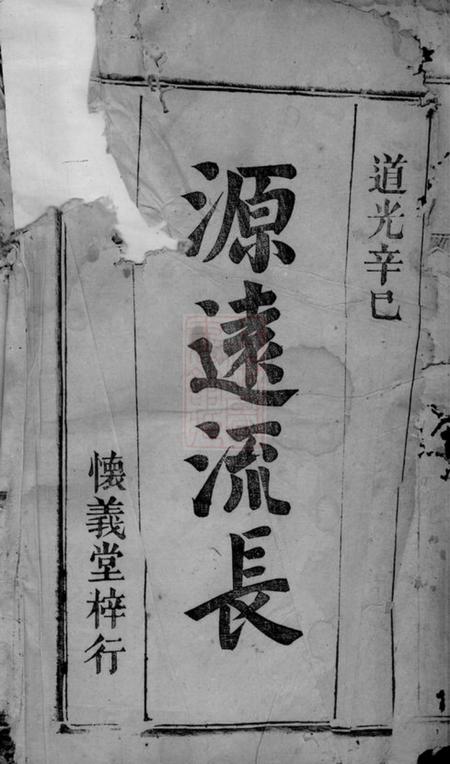 道光辛巳
源遠流長
懐義堂梓行